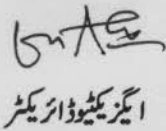 ایگزیکٹیوڈائریکٹر